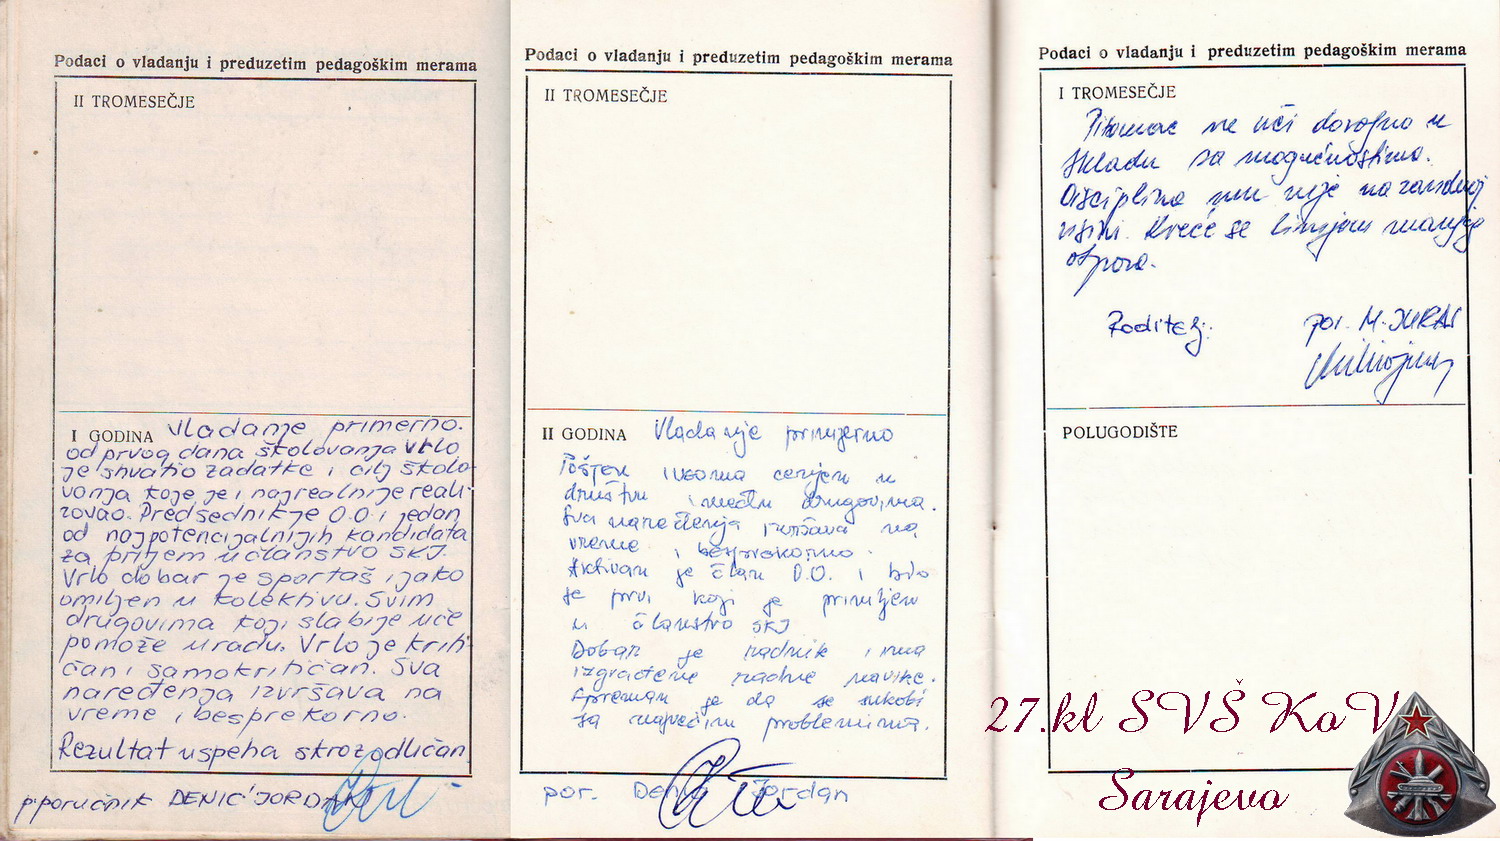 Podaci o vladanju i preduzetim pedagoškim merama
II TROMESEČJE
I GODINA vladanje primerno.
od prvog dana školovanja vrlo
je shvatio zadatke i cilj školo-
vanja koje je i najrealnije reali-
zovao. Predsednik je O.O. i jedan
od najpotencijalnijih kandidata
za prijem u članstvo SKJ.
Vrlo dobar je sportaš i jako
omiljen u kolektivu. Svim
drugovima koji slabije uče
pomože u radu. Vrlo je kriti-
čan i samokritičan. Sva
naređenja izvršava na
vreme i besprekorno.
Rezultat uspeha skroz odličan
p.poručnik DENIĆ JORDAN
Podaci o vladanju i preduzetim pedagoškim merama
II TROMESEČJE
II GODINA Vladanje primjerno
Pošten i veoma cenjen u
društvu i među drugovima.
Sva naređenja izvršava na
vreme i besprekorno.
Aktivan je član O.O. i bio
je prvi koji je primljen
u članstvo SKJ
Dobar je radnik i ima
izgrađene radne navike.
Spreman je da se sukobi
sa najvećim problemima.
por. Denić Jordan
Podaci o vladanju i preduzetim pedagoškim merama
I TROMESEČJE
Pitomac ne uči dovoljno u
skladu sa mogućnostima.
Disciplina mu nije na zavidnoj
visini. Kreće se linijom manjeg
otpora.
Roditelj: por. M. JURAS
POLUGODIŠTE
27.kl SVŠ KoV
Sarajevo